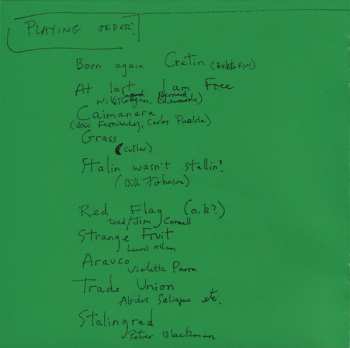 PLAYING ORDER:
Born again Cretin (Robt Wyatt)
At last I am Free
(Nile Rodgers, Bernard Edwards)
Caimanera
(Jose Fernandez, Carlos Puebla)
Grass
(Cutler)
Stalin wasn't stallin'
(Bill Johnson)
Red Flag (o.k?)
trad/Jim Connell
Strange Fruit
Lewis Allan
Arauco
Violetta Parra
Trade Union
Abdus Salique etc.
Stalingrad
Peter Blackman